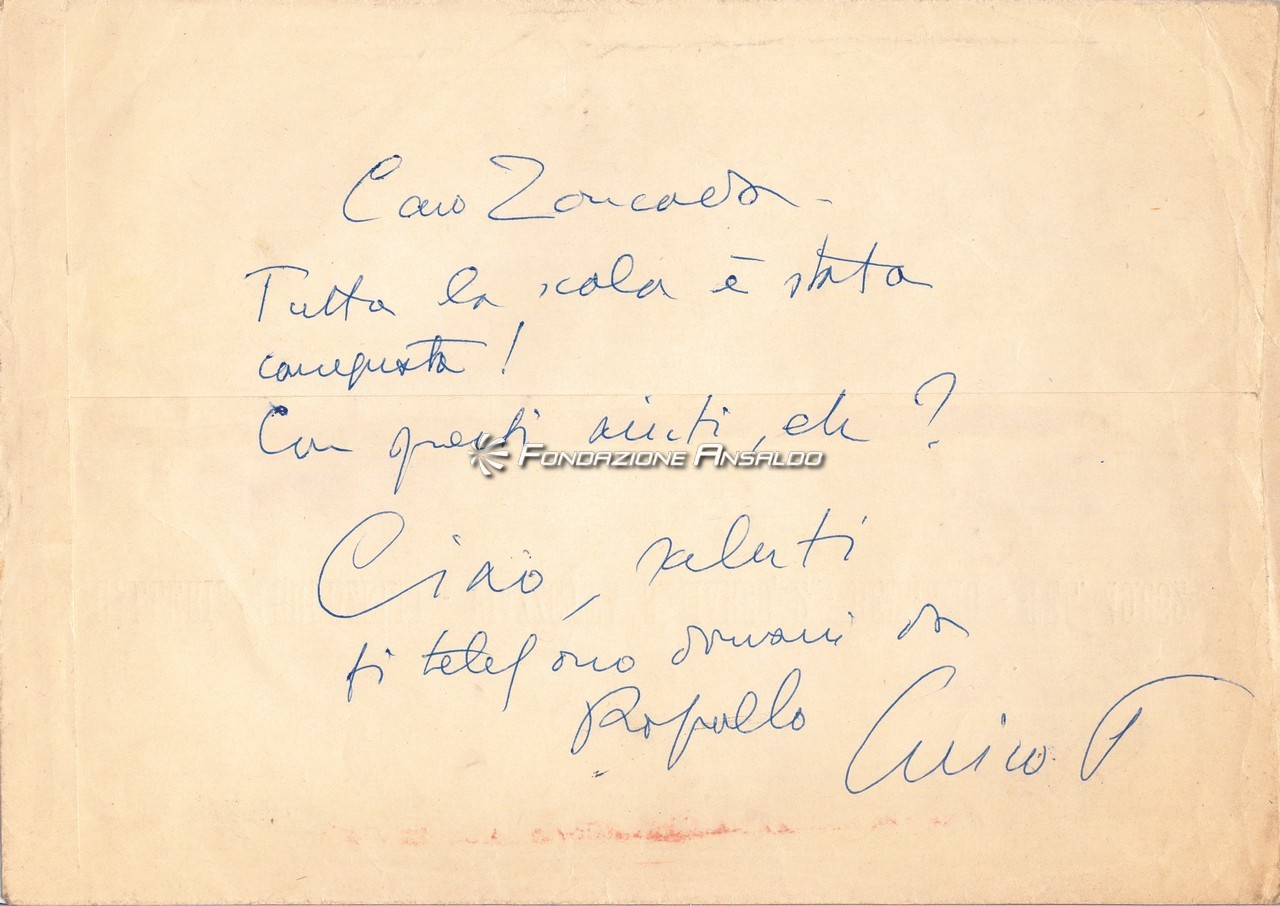 Caro Zoncada -
Tutta la scala è stata
conquista!
Con questi aiuti, eh?
FONDAZIONE ANSALDO
Ciao, saluti
ti telefono domani da
Rapallo